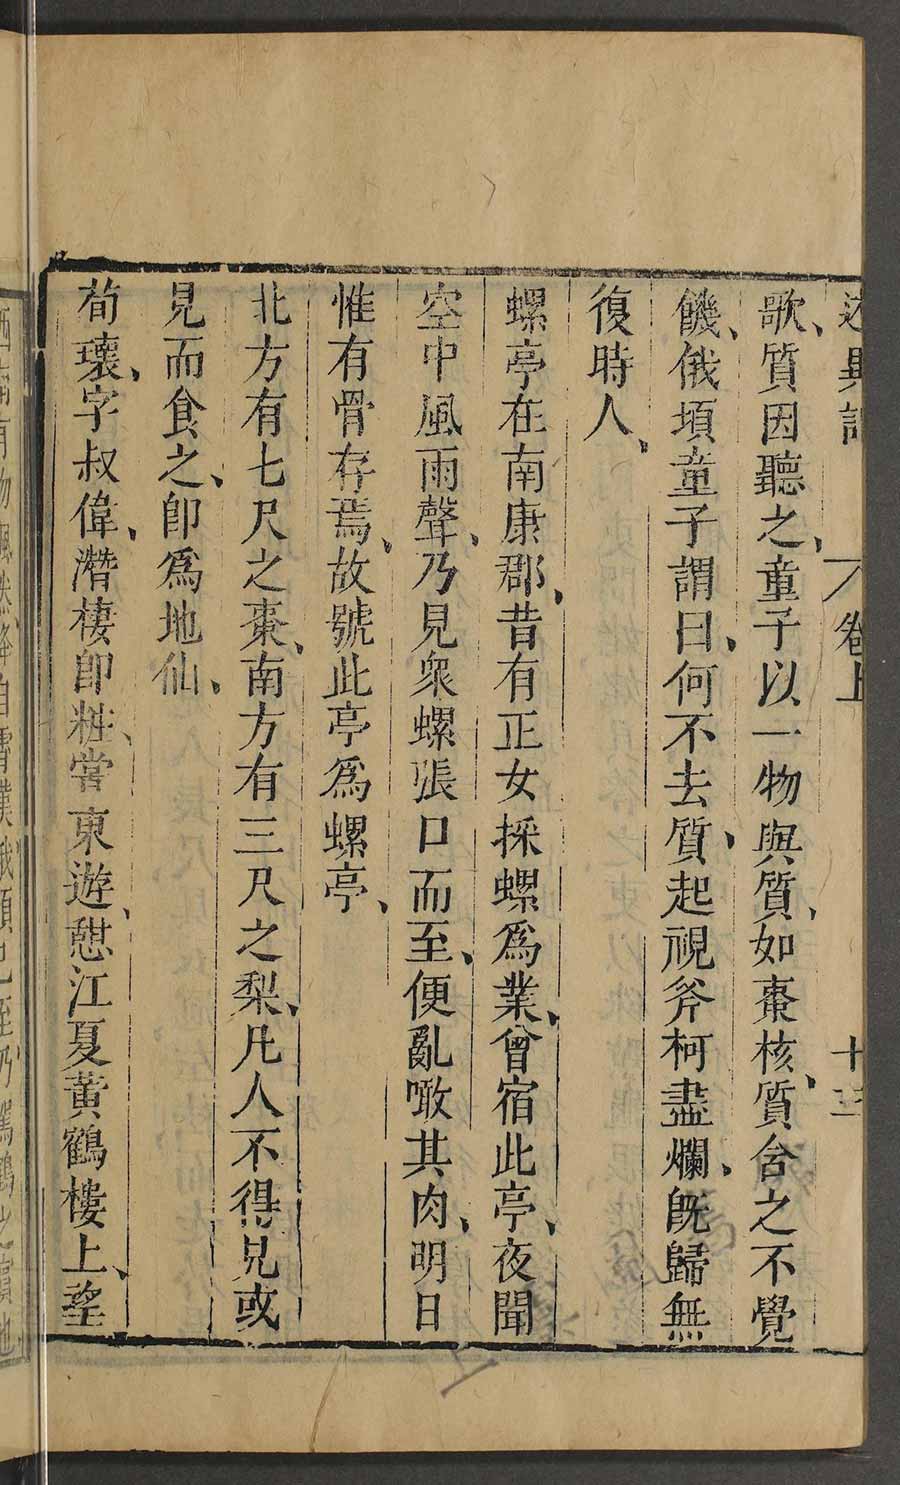 述異記 卷上 十三
歌、質因聽之、童子以一物與質、如棗核、質含之不覺
饑、俄頃童子謂曰、何不去、質起視斧柯盡爛、旣歸無
復時人、
螺亭在南康郡、昔有正女採螺爲業、曾宿此亭、夜聞
空中風雨聲、乃見衆螺張口而至、便亂噉其肉、明日
惟有骨存焉、故號此亭爲螺亭、
北方有七尺之棗、南方有三尺之梨、凡人不得見或
見而食之、卽爲地仙、
荀瓌、字叔偉、潛棲卽粧、嘗東遊、憇江夏黃鶴樓上、望
西南有物飄然降自霄漢俄頃已至乃駕鶴之賓也